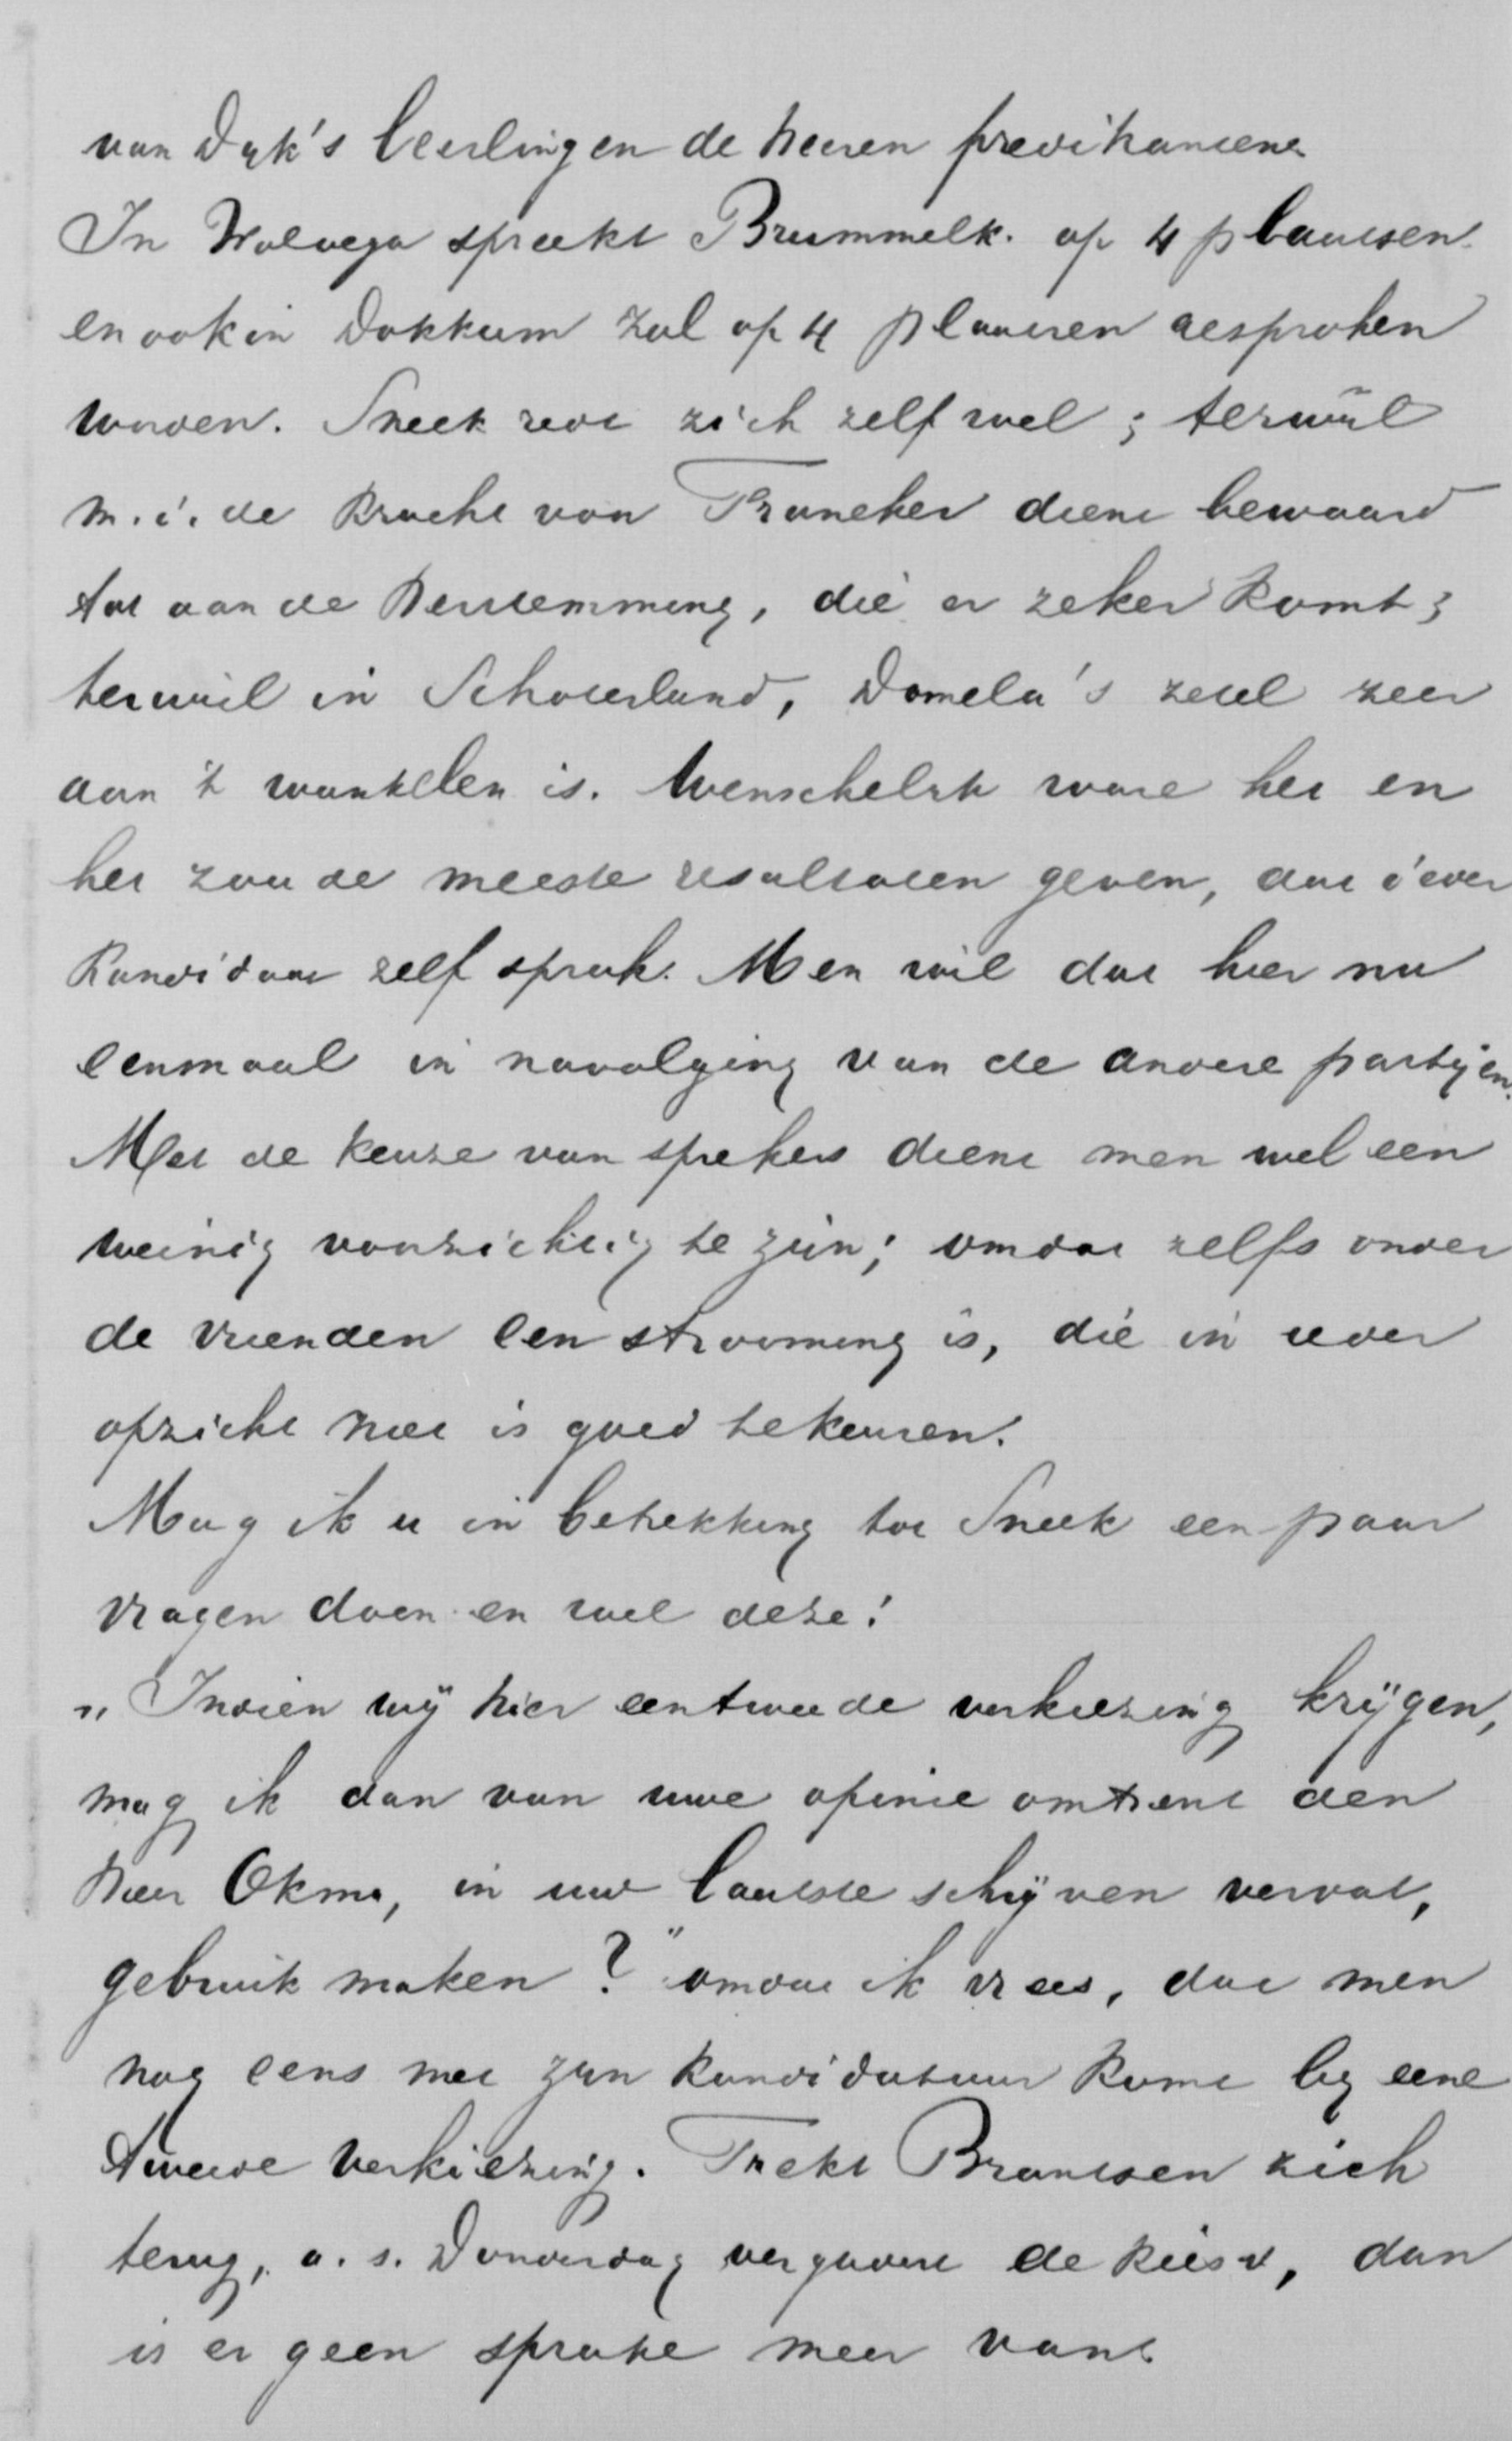 van Dyk's leerlingen de heeren predikanten.
In Wolvega spreekt Brummelk. op 4 plaatsen
en ook in Dokkum zal op 4 plaatsen gesproken
worden. Sneek redt zich zelf wel; terwijl
m.i. de kracht van Franeker dient bewaard
tot aan de herstemming, die er zeker komt;
terwijl in Schoterland, Domela's zetel zeer
aan 't wankelen is. Wenschelyk ware het en
het zou de meeste resultaten geven, dat ieder
kandidaat zelf sprak. Men wil dat hier nu
eenmaal in navolging van de andere partijen.
Met de keuze van sprekers dient men wel een
weinig voorzichtig te zijn; omdat zelfs onder
de vrienden een strooming is, die in ieder
opzicht niet is goed te keuren.
Mag ik u in betrekking tot Sneek een paar
vragen doen en wel deze:
„Indien wij hier een tweede verkiezing krijgen,
mag ik dan van uwe opinie omtrent den
heer Okma, in uw laatste schrijven vervat,
gebruik maken?" omdat ik vrees, dat men
nog eens met zyn kandidatuur komt by eene
tweede verkiezing. Trekt Brantsen zich
terug, a.s. Donderdag vergadert de kiesv, dan
is er geen sprake meer van.